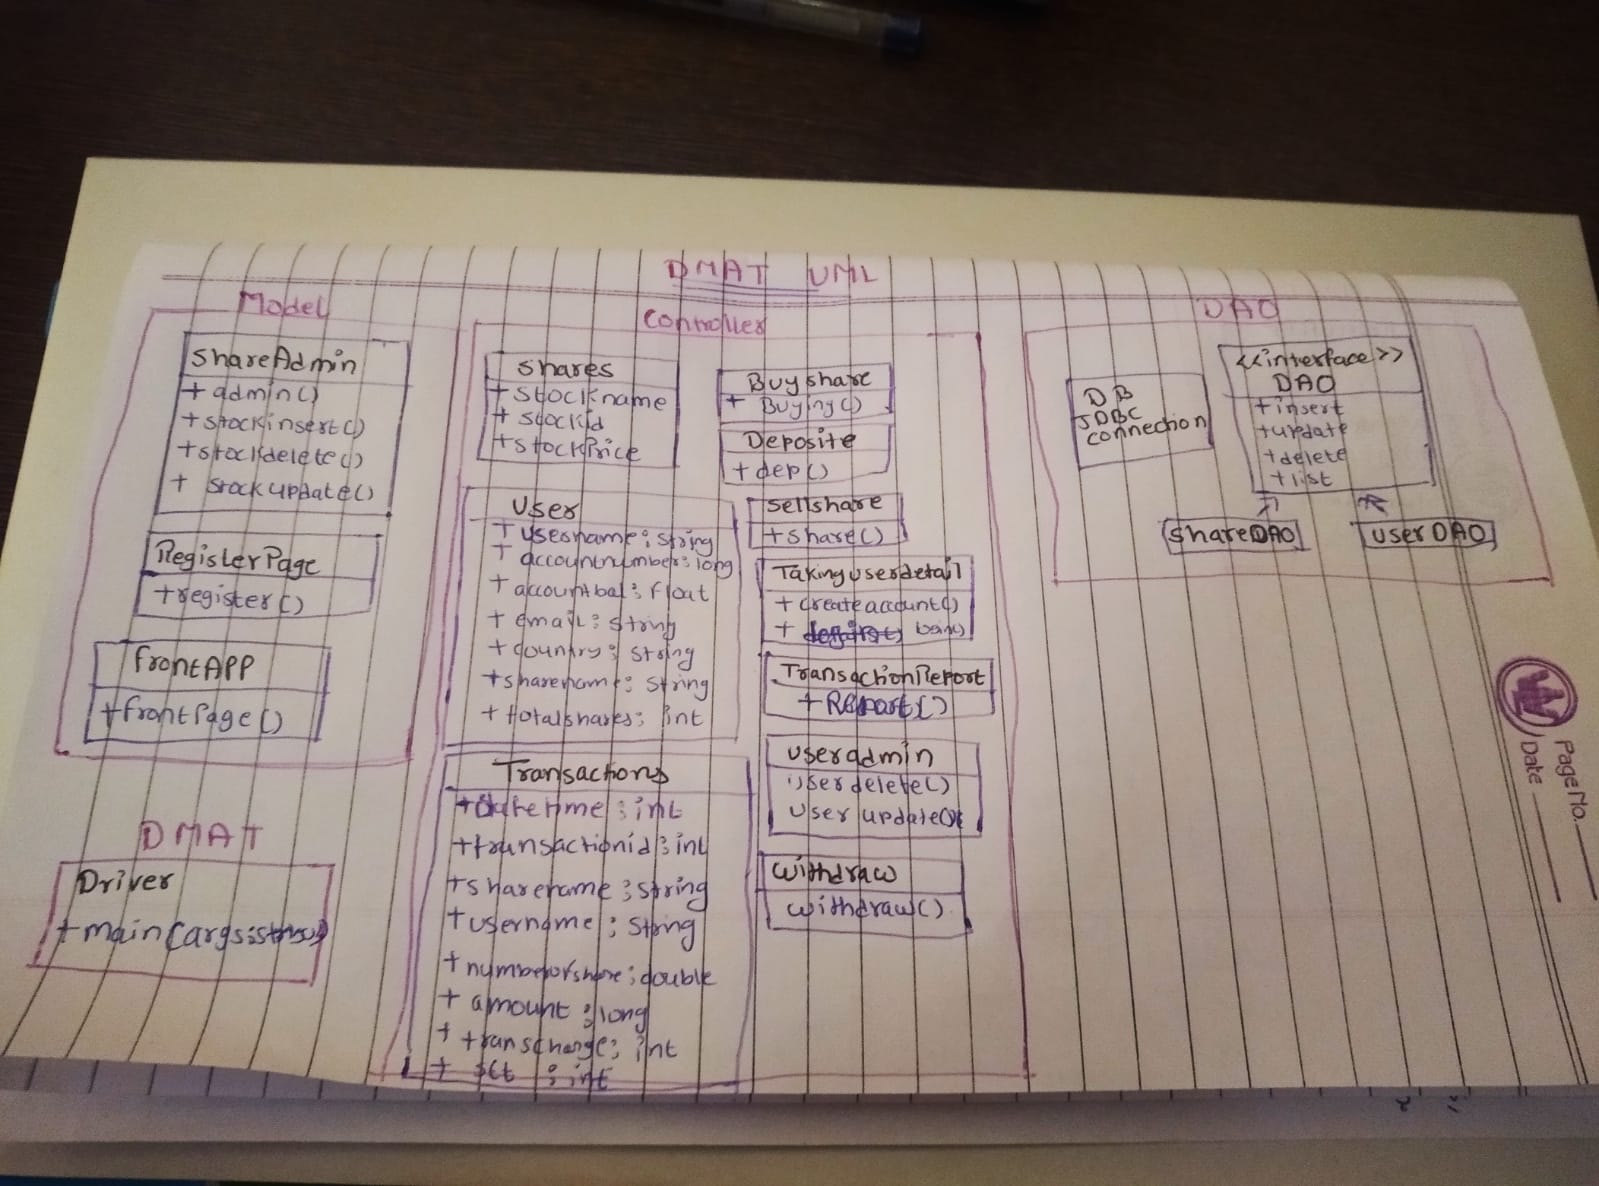 DMAT UML
Model
ShareAdmin
+ admin()
+stockinsert()
+stockdelete()
+ stockupdate()
RegisterPage
+register()
frontAPP
+frontPage()
DMAT
Driver
Controller
shares
+stockname
+ stockid
+stockPrice
User
+ username : string
+ accountnumber : long
+ accountbal : float
+ email : string
+ country : string
+sharename : string
+ totalshares : int
Transactions
+datetime : int
+transactionid : int
+sharename : string
+ username : string
+ numberofshare : double
+ amount : long
+ transcharge : int
+ : int
Buyshare
+ Buying()
Deposite
+dep()
sellshare
+share()
Takinguserdetail
+ createaccount()
+
TransactionReport
+ Report()
useradmin
userdelete()
userupdate()
withdraw
withdraw()
DAO
DB
JDBC
connection
<<interface>>
DAO
+insert
+update
+delete
+list
shareDAO
userDAO
Page No.
Date